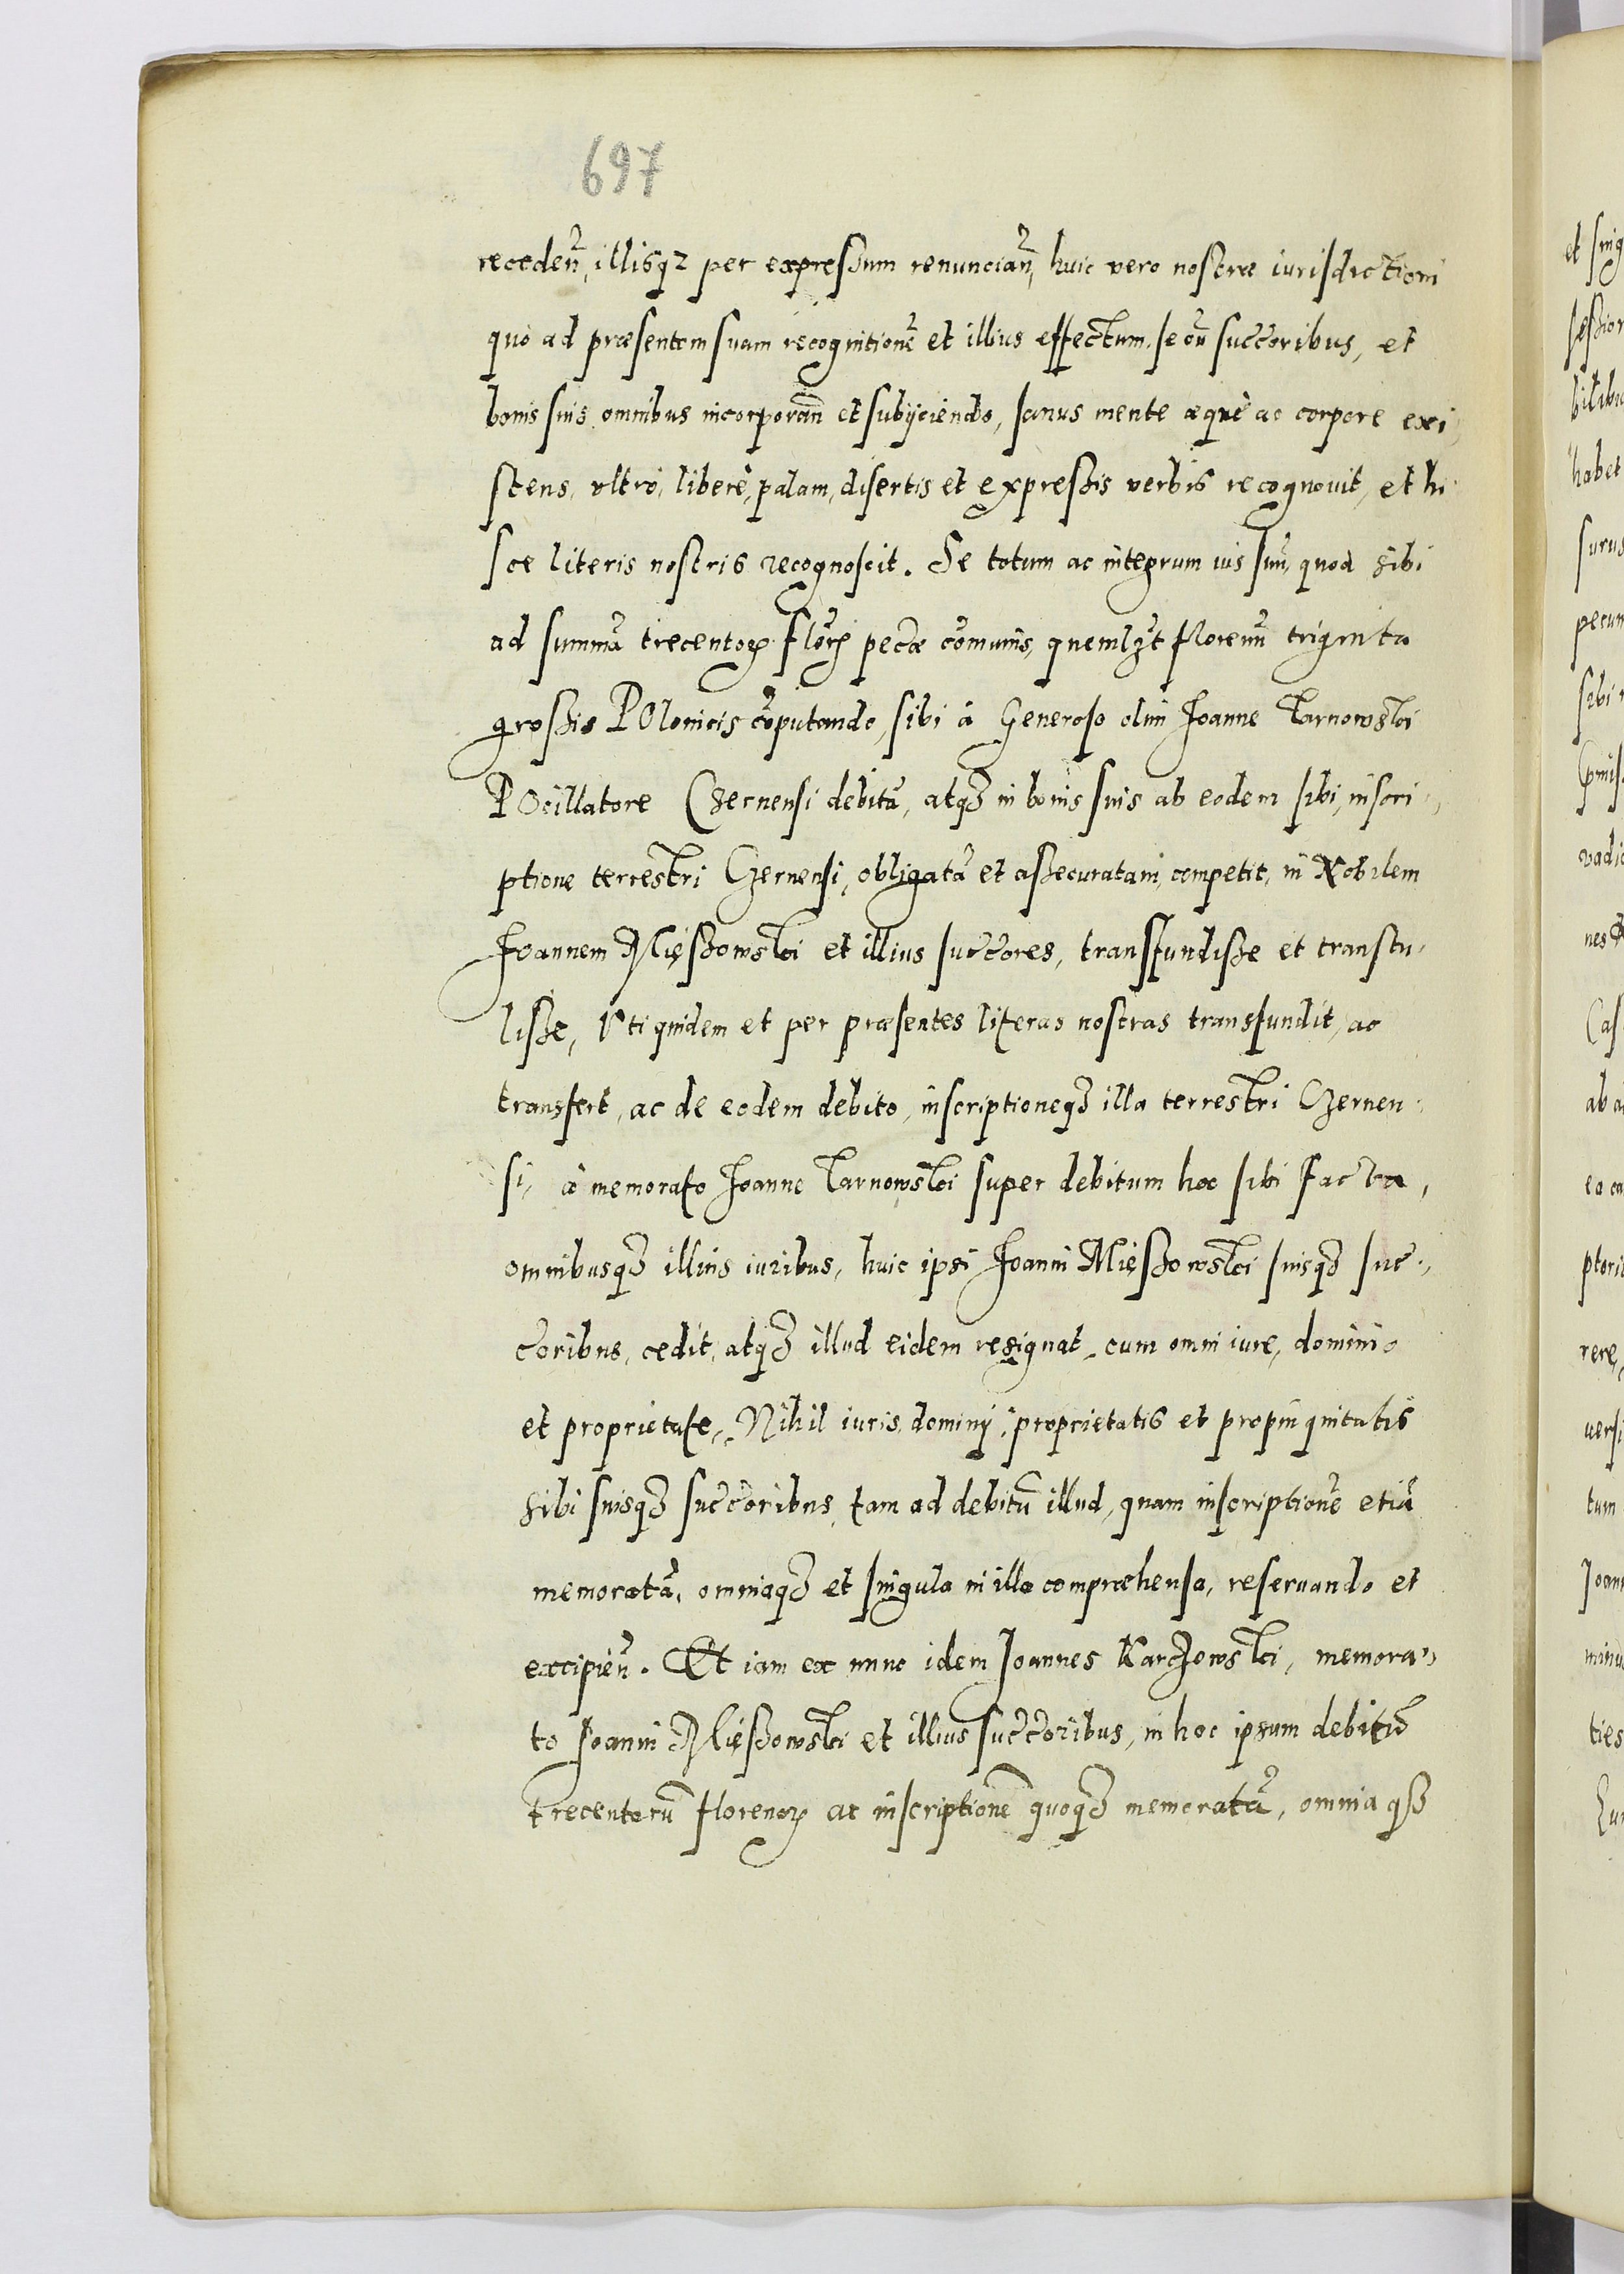 697
receden̄, illisqz per expressum renuncian̄, huic vero nostræ iurisdictioni
quo ad præsentem suam recognitionē et illius effectum, se cū succ̄oribus, et
bonis suis omnibus incorporan̄ et subijciendo, sanus mente æquè ac corpore exi,
stens, vltrò, liberè, palam, disertis et expressis verbis recognouit, et hi
sce literis nostris recognoscit. Se totum ac integrum ius suū, quod sibi
ad summā trecentoꝝ flōrꝝ pec̄æ cōmunis, quemlꝫt florenū triginta
grossis POlonicis cōputando, sibi à Generoso olim Joanne Tarnowski
POcillatore Czernensi debitā, atqꝫ in bonis suis ab eodem sibi, inscri,
ptione terrestri Czernensi, obligatā et assecuratam, competit, in Nobilem
Joannem Mięszowski et illius succ̄ores, transfundisse et transtu,
lisse, Vti quidem et per præsentes literas nostras transfundit, ac
transfert, ac de eodem debito, inscriptioneqꝫ illa terrestri Czernen,
si, à memorato Joanne Tarnowski super debitum hoc sibi facta,
omnibusqꝫ illius iuribus, huic ipsi Joanni Mięszowski suisqꝫ suc̄,
c̄oribus, cedit, atqꝫ illud eidem resignat, cum omni iure, dominio
et proprietate, Nihil iuris, dominij, proprietatis et propinquitatis
sibi suisqꝫ succ̄oribus, tam ad debitū illud, quam inscriptionē etiā
memoratā, omniaqꝫ et singula in illa compræhensa, reseruando et
excipien̄. Et iam ex nunc idem Joannes Karczowski, memora,
to Joanni Mięszowski et illius succ̄oribus, in hoc ipsum debitū
trecentorū florenoꝝ ac inscriptionē quoqꝫ memoratā, omnia qꝫ
et sing
habet
surus
pecun
sibi
vadi
ab a
ptori
rere,
versi
tum
Joan
minu
ties